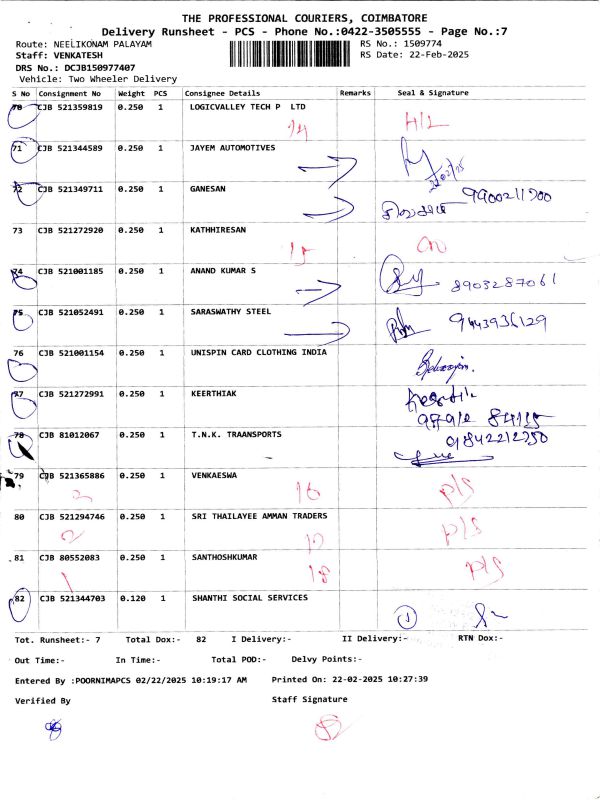 THE PROFESSIONAL COURIERS, COIMBATORE
Delivery Runsheet - PCS - Phone No.:0422-3505555 - Page No.:7
Route: NEELIKONAM PALAYAM RS No.: 1509774
Staff: VENKATESH RS Date: 22-Feb-2025
DRS No.: DCJB150977407
Vehicle: Two Wheeler Delivery
S No Consignment No Weight PCS Consignee Details Remarks Seal & Signature
70 CJB 521359819 0.250 1 LOGICVALLEY TECH P LTD
14 H/L
71 CJB 521344589 0.250 1 JAYEM AUTOMOTIVES
22/02/25
72 CJB 521349711 0.250 1 GANESAN
9900211700
73 CJB 521272920 0.250 1 KATHHIRESAN
15
74 CJB 521001185 0.250 1 ANAND KUMAR S
8903287061
75 CJB 521052491 0.250 1 SARASWATHY STEEL
9443936129
76 CJB 521001154 0.250 1 UNISPIN CARD CLOTHING INDIA
77 CJB 521272991 0.250 1 KEERTHIAK
78 CJB 81012067 0.250 1 T.N.K. TRAANSPORTS
79 CJB 521365886 0.250 1 VENKAESWA
3 16 P/S
80 CJB 521294746 0.250 1 SRI THAILAYEE AMMAN TRADERS
2 17 P/S
81 CJB 80552083 0.250 1 SANTHOSHKUMAR
1 18 P/S
82 CJB 521344703 0.120 1 SHANTHI SOCIAL SERVICES
1
Tot. Runsheet:- 7 Total Dox:- 82 I Delivery:- II Delivery:- RTN Dox:-
Out Time:- In Time:- Total POD:- Delvy Points:-
Entered By :POORNIMAPCS 02/22/2025 10:19:17 AM Printed On: 22-02-2025 10:27:39
Verified By Staff Signature